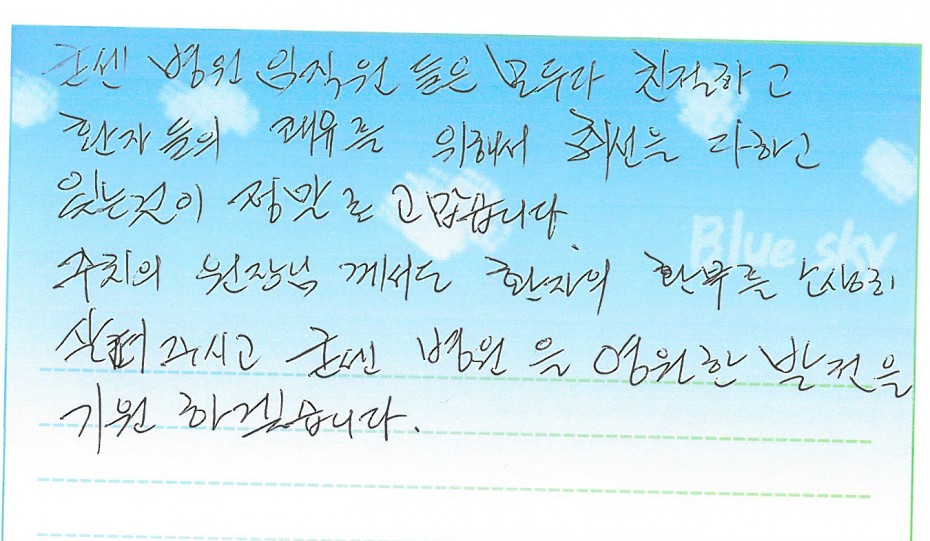 굳센 병원 임직원 들은 모두다 친절하고
환자 들의 쾌유를 위해서 최선을 다하고
있는것이 정말로 고맙습니다.
Blue sky
주치의 원장님 께서도 환자의 환부를 난삼히
살펴주시고 굳센 병원 을 영원한 발전을
기원 하겠습니다.